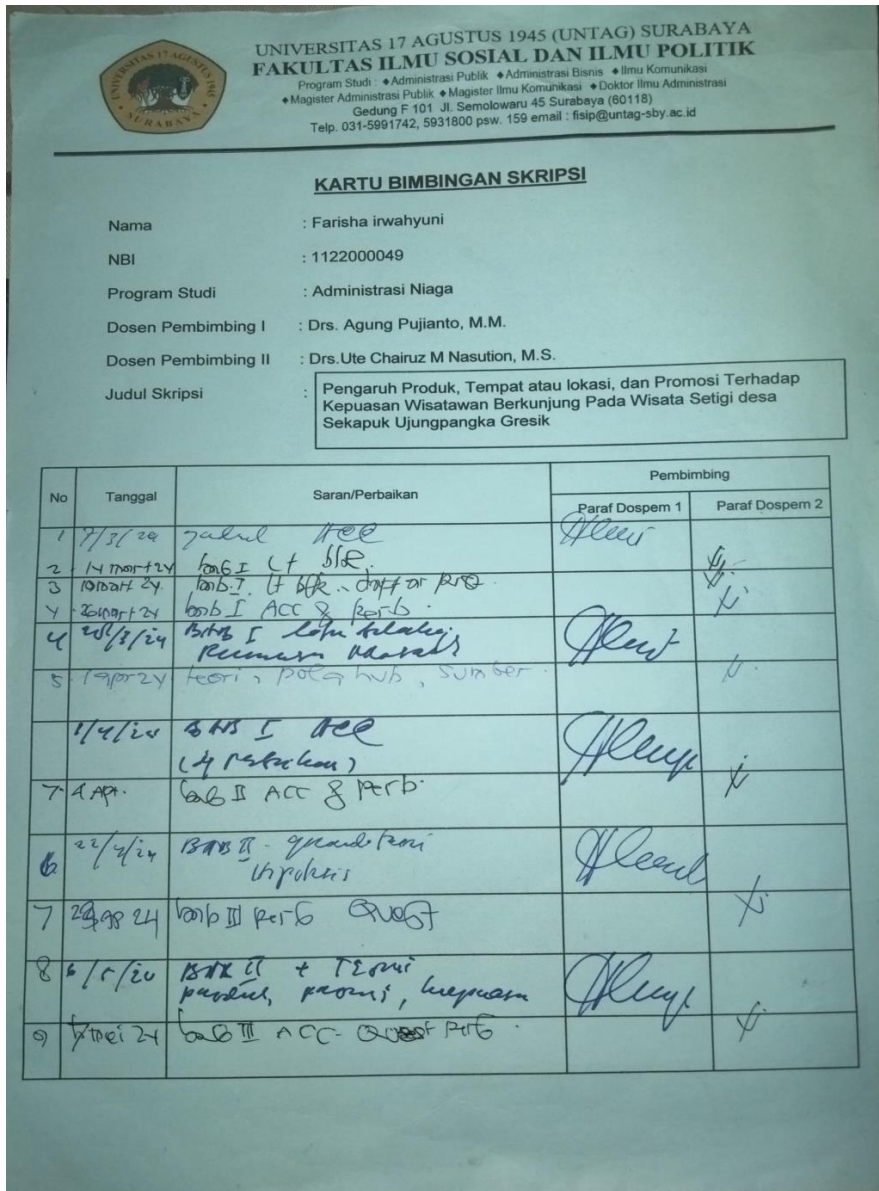 UNIVERSITAS 17 AGUSTUS 1945
SURABAYA
UNIVERSITAS 17 AGUSTUS 1945 (UNTAG) SURABAYA
FAKULTAS ILMU SOSIAL DAN ILMU POLITIK
Program Studi : ◆Administrasi Publik ◆Administrasi Bisnis ◆Ilmu Komunikasi
◆Magister Administrasi Publik ◆Magister Ilmu Komunikasi ◆Doktor Ilmu Administrasi
Gedung F 101 Jl. Semolowaru 45 Surabaya (60118)
Telp. 031-5991742, 5931800 psw. 159 email : fisip@untag-sby.ac.id
KARTU BIMBINGAN SKRIPSI
Nama : Farisha irwahyuni
NBI : 1122000049
Program Studi : Administrasi Niaga
Dosen Pembimbing I : Drs. Agung Pujianto, M.M.
Dosen Pembimbing II : Drs.Ute Chairuz M Nasution, M.S.
Judul Skripsi : Pengaruh Produk, Tempat atau lokasi, dan Promosi Terhadap
Kepuasan Wisatawan Berkunjung Pada Wisata Setigi desa
Sekapuk Ujungpangka Gresik
No Tanggal Saran/Perbaikan Pembimbing
Paraf Dospem 1 Paraf Dospem 2
1 7/3/24 Judul ACC
2 14 mart 24 bab I
3 bab I
4 26 mart 24 bab I ACC & perb.
4 BAB I
5 1 apr 24 teori, pola hub, sumber
1/4/24 BAB I ACC
7. 4 Apr. bab II ACC & perb.
6 22/4/24 BAB II -
7 24 bab III perb Quest
8 6/5/24 BAB II + Teori
9 7 mei 24 bab III ACC - Quest perb.